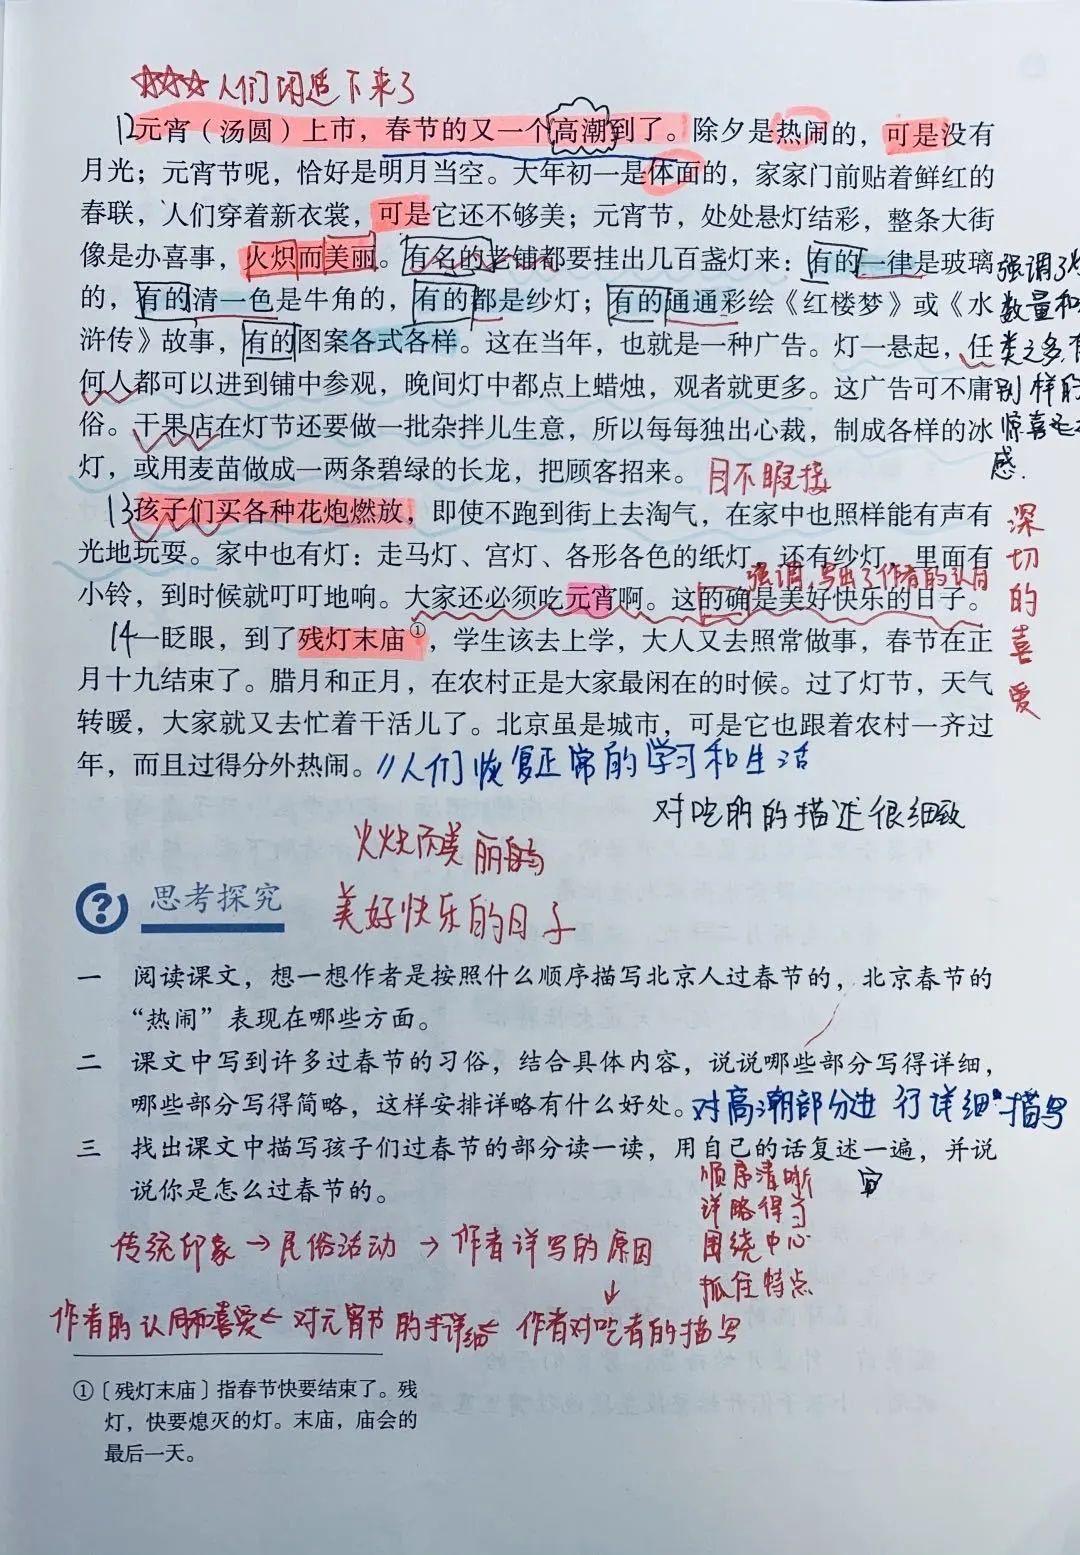 ☆☆☆人们闲适下来了
12元宵（汤圆）上市，春节的又一个高潮到了。除夕是热闹的，可是没有
月光；元宵节呢，恰好是明月当空。大年初一是体面的，家家门前贴着鲜红的
春联，人们穿着新衣裳，可是它还不够美；元宵节，处处悬灯结彩，整条大街
像是办喜事，火炽而美丽。有名的老铺都要挂出几百盏灯来：有的一律是玻璃
的，有的清一色是牛角的，有的都是纱灯；有的通通彩绘《红楼梦》或《水
浒传》故事，有的图案各式各样。这在当年，也就是一种广告。灯一悬起，任
何人都可以进到铺中参观，晚间灯中都点上蜡烛，观者就更多。这广告可不庸
俗。干果店在灯节还要做一批杂拌儿生意，所以每每独出心裁，制成各样的冰
灯，或用麦苗做成一两条碧绿的长龙，把顾客招来。
目不暇接
强调了
数量和
类之多
别样的
惊喜之
感.
13孩子们买各种花炮燃放，即使不跑到街上去淘气，在家中也照样能有声有
光地玩耍。家中也有灯：走马灯、宫灯、各形各色的纸灯，还有纱灯，里面有
强调,写出了作者的认同
小铃，到时候就叮叮地响。大家还必须吃元宵啊。这的确是美好快乐的日子。
深切的喜爱
14一眨眼，到了残灯末庙①，学生该去上学，大人又去照常做事，春节在正
月十九结束了。腊月和正月，在农村正是大家最闲在的时候。过了灯节，天气
转暖，大家就又去忙着干活儿了。北京虽是城市，可是它也跟着农村一齐过
年，而且过得分外热闹。
//人们恢复正常的学习和生活
对吃的的描述很细致
火炽而美丽的
美好快乐的日子
思考探究
一 阅读课文，想一想作者是按照什么顺序描写北京人过春节的，北京春节的
“热闹”表现在哪些方面。
二 课文中写到许多过春节的习俗，结合具体内容，说说哪些部分写得详细，
哪些部分写得简略，这样安排详略有什么好处。
对高潮部分进行详细描写
三 找出课文中描写孩子们过春节的部分读一读，用自己的话复述一遍，并说
说你是怎么过春节的。
顺序清晰
详略得当
围绕中心
抓住特点
传统印象→民俗活动→作者详写的原因
↓
作者的认同和喜爱← 对元宵节的详细← 作者对吃者的描写
①〔残灯末庙〕指春节快要结束了。残
灯，快要熄灭的灯。末庙，庙会的
最后一天。